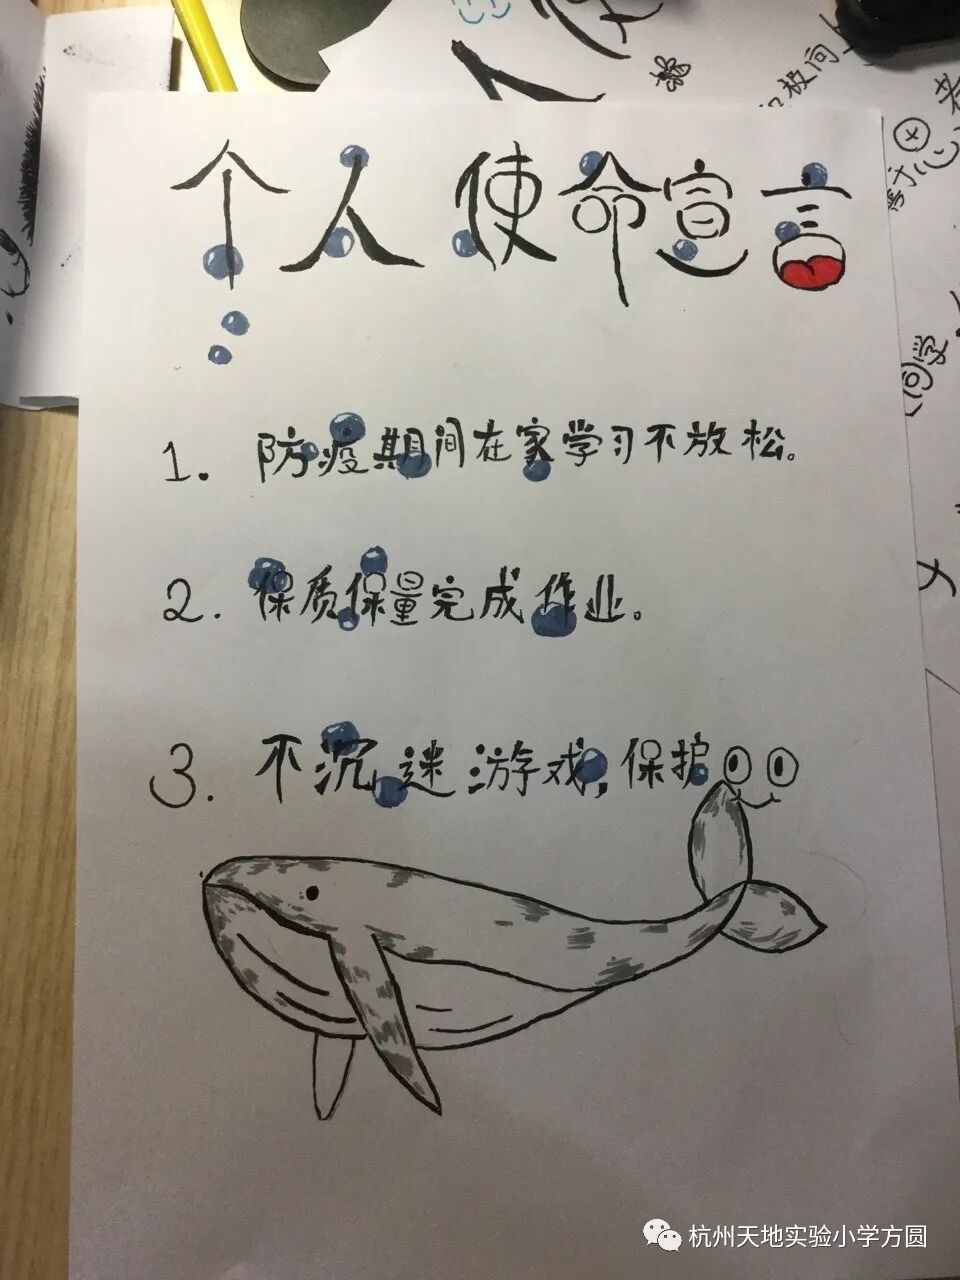 个人使命宣言
1. 防疫期间在家学习不放松。
2. 保质保量完成作业。
3. 不沉迷游戏,保护
极向
杭州天地实验小学方圆